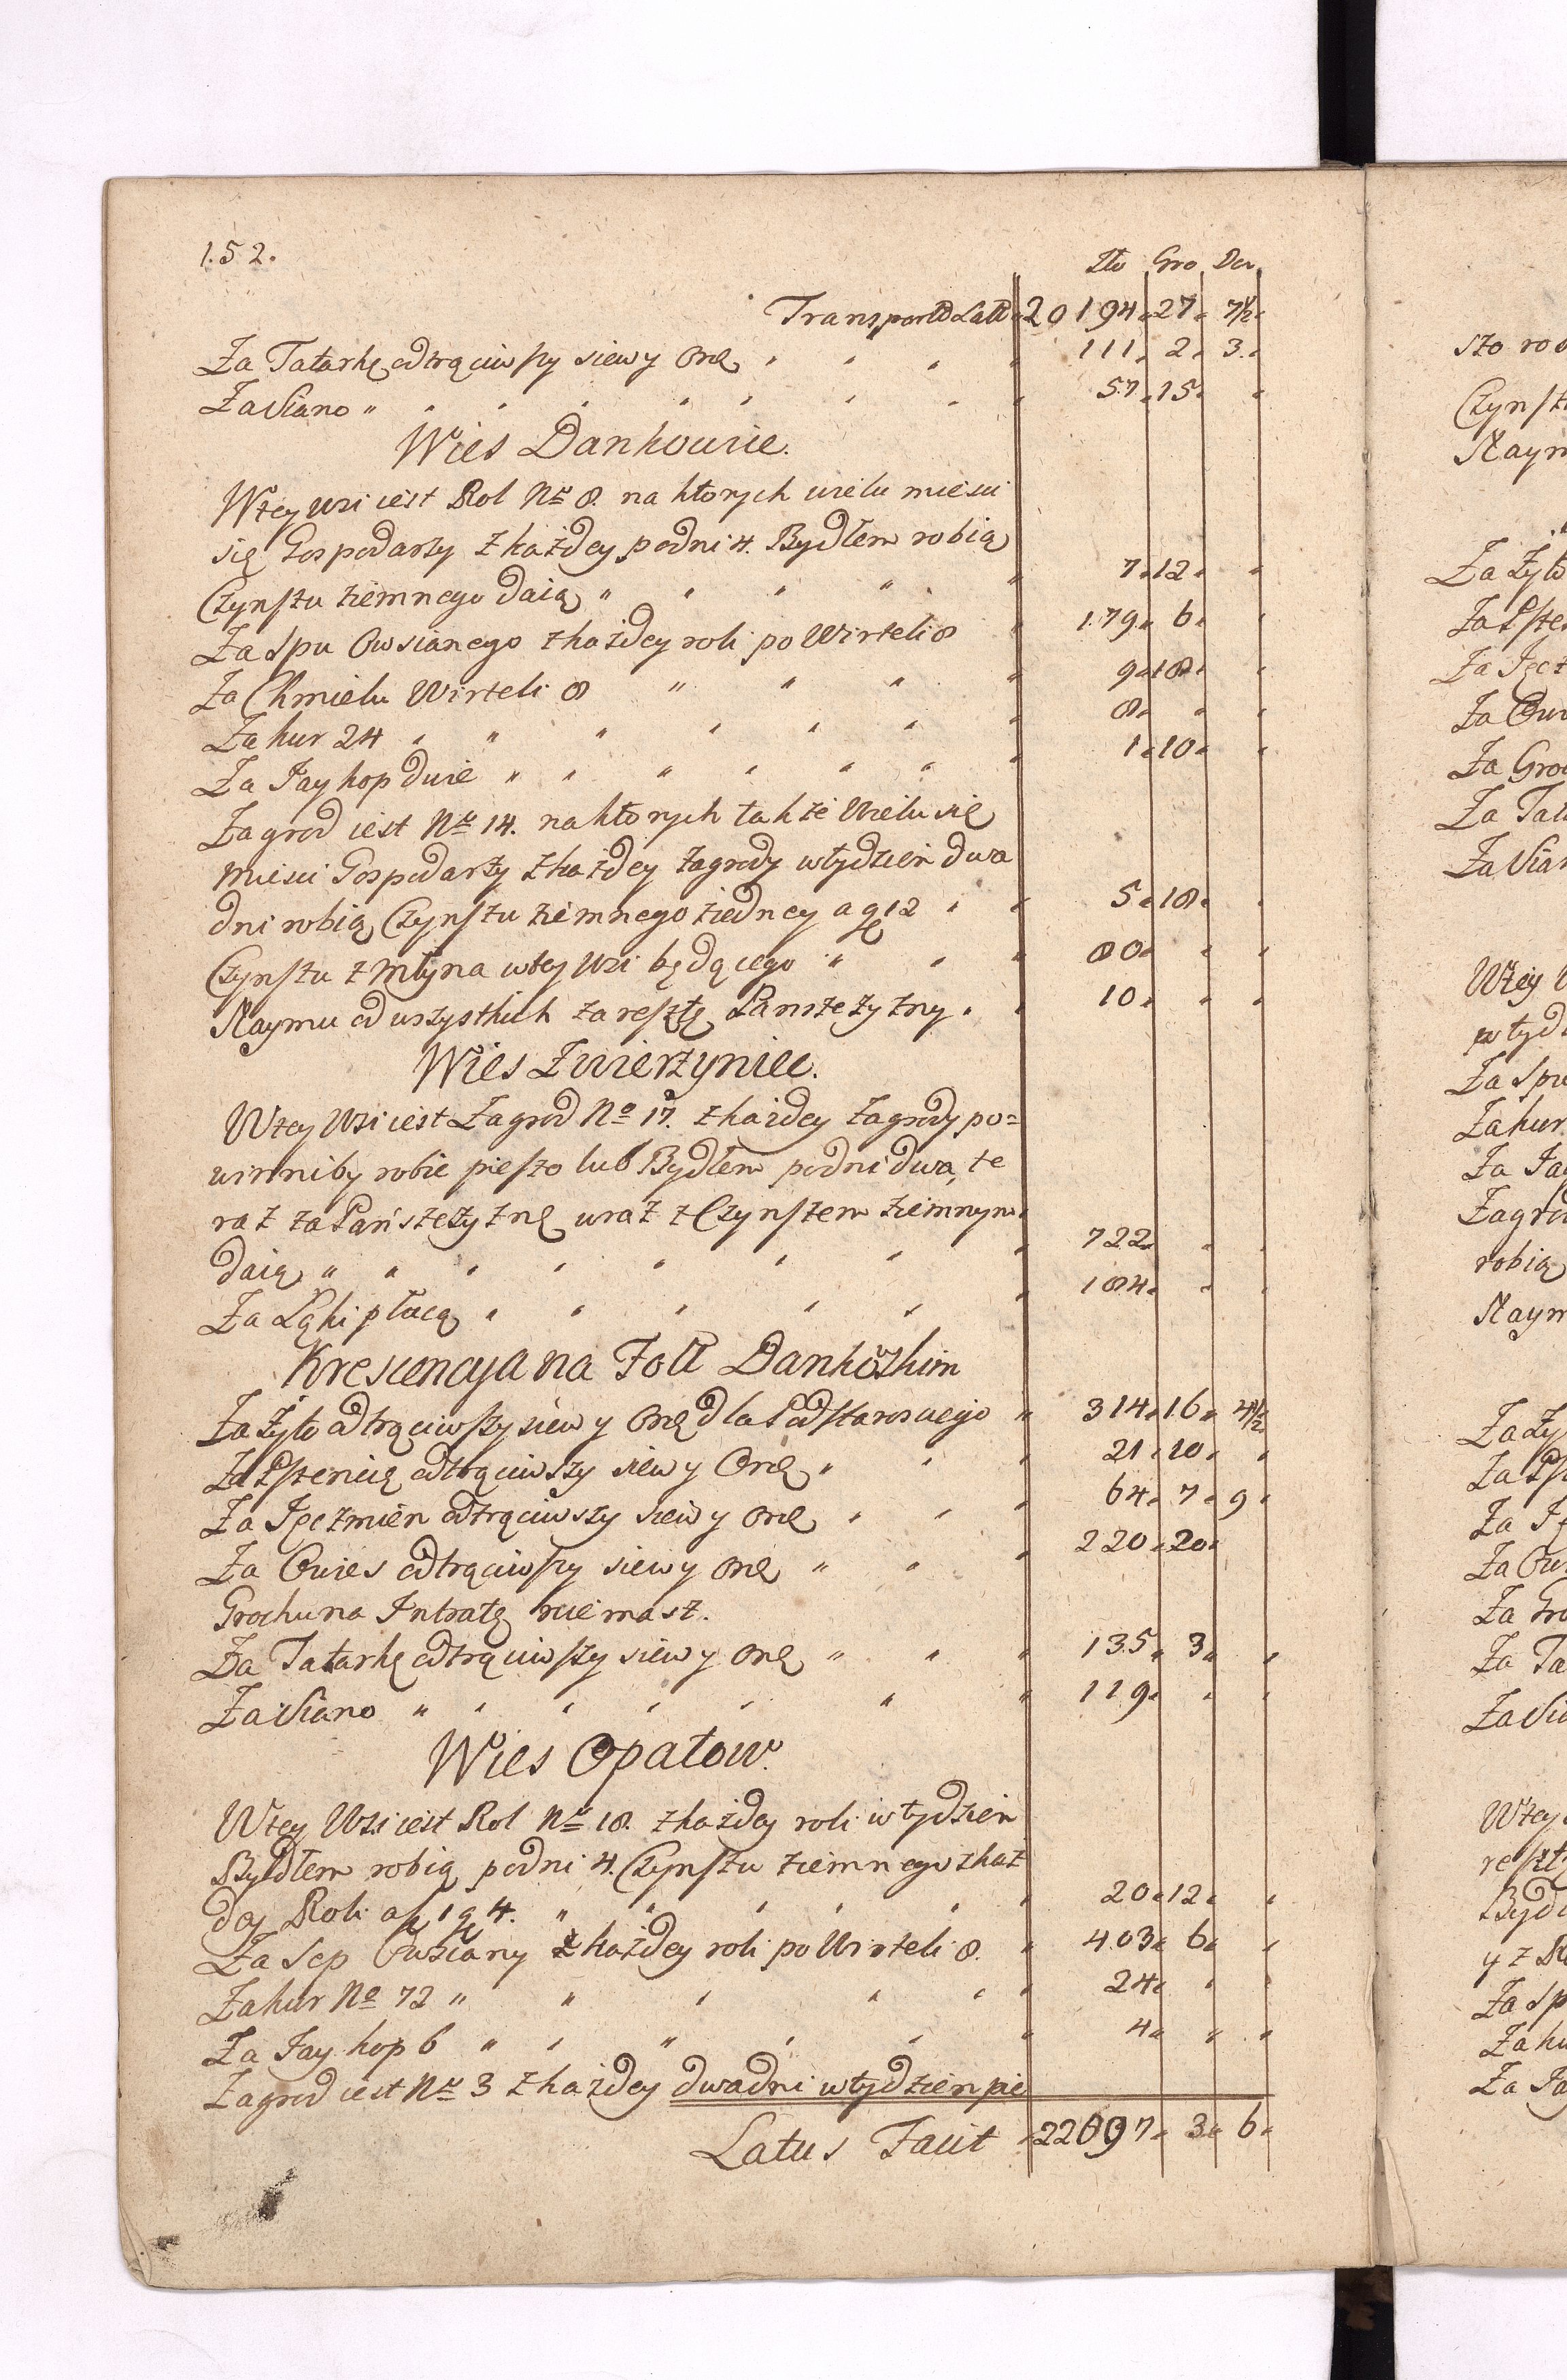 152.
Zło Gro De.
Transport Lat 20194. 27. 7½.
Za Tatarkę odtrąciwszy siew y Onę 111. 2. 3.
Za Siano 57. 15.
Wies Dankowie.
W tey wsi iest Rol Nr 8. na ktorych wielu miesci
się Gospodarzy z każdey po dni 4. Bydłem robią
Czynszu ziemnego daią 7. 12.
Za Spu Owsianego z każdey roli po Wirteli 8 179. 6.
Za Chmielu Wirteli 8 9. 18.
Za kur 24 8.
Za Jay kop dwie 1. 10.
Zagrod iest Nr 14. na ktorych także Wielu się
miesci Gospodarzy z każdey zagrody w tydzien dwa
dni robią, Czynszu ziemnego z iedney a g 12 5. 18.
Czynszu z Młyna w tey Wsi będącego 80.
Naymu od wszystkich za resztę Panszczyzny. 10.
Wies Zwierzyniec.
W tey Wsi iest Zagrod No 17. z każdey Zagrody po=
winniby robic pieszo lub Bydłem po dni dwa, te
raz za Pańszczyznę wraz z Czynszem ziemnym
daią 722.
Za Łąki płacą 184.
Krescencya na Fol Dankowskim
Za Żyto odtrąciwszy siew y Onę dla Podstarosciego 314. 16. 4½
Za Pszenicę odtrąciwszy siew y Onę 21. 10.
Za Jęczmien odtrąciwszy siew y Onę 64. 7. 9.
Za Owies odtrąciwszy siew y Onę 220. 20.
Grochu na Intratę niemasz.
Za Tatarkę odtrąciwszy siew y Onę 135. 3.
Za Siano 119.
Wies Opatow.
W tey Wsi iest Rol Nr 18. z każdey roli w tydzien
Bydłem robią po dni 4. Czynszu ziemnego z każ
dey Roli a f 1 g 4. 20. 12.
Za Sep Owsiany z każdey roli po Wirteli 8. 403. 6.
Za kur No 72 24.
Za Jay kop 6 4.
Zagrod iest Nr 3 z każdey dwa dni w tydzien pie
Latus Facit 22897. 3. 6.